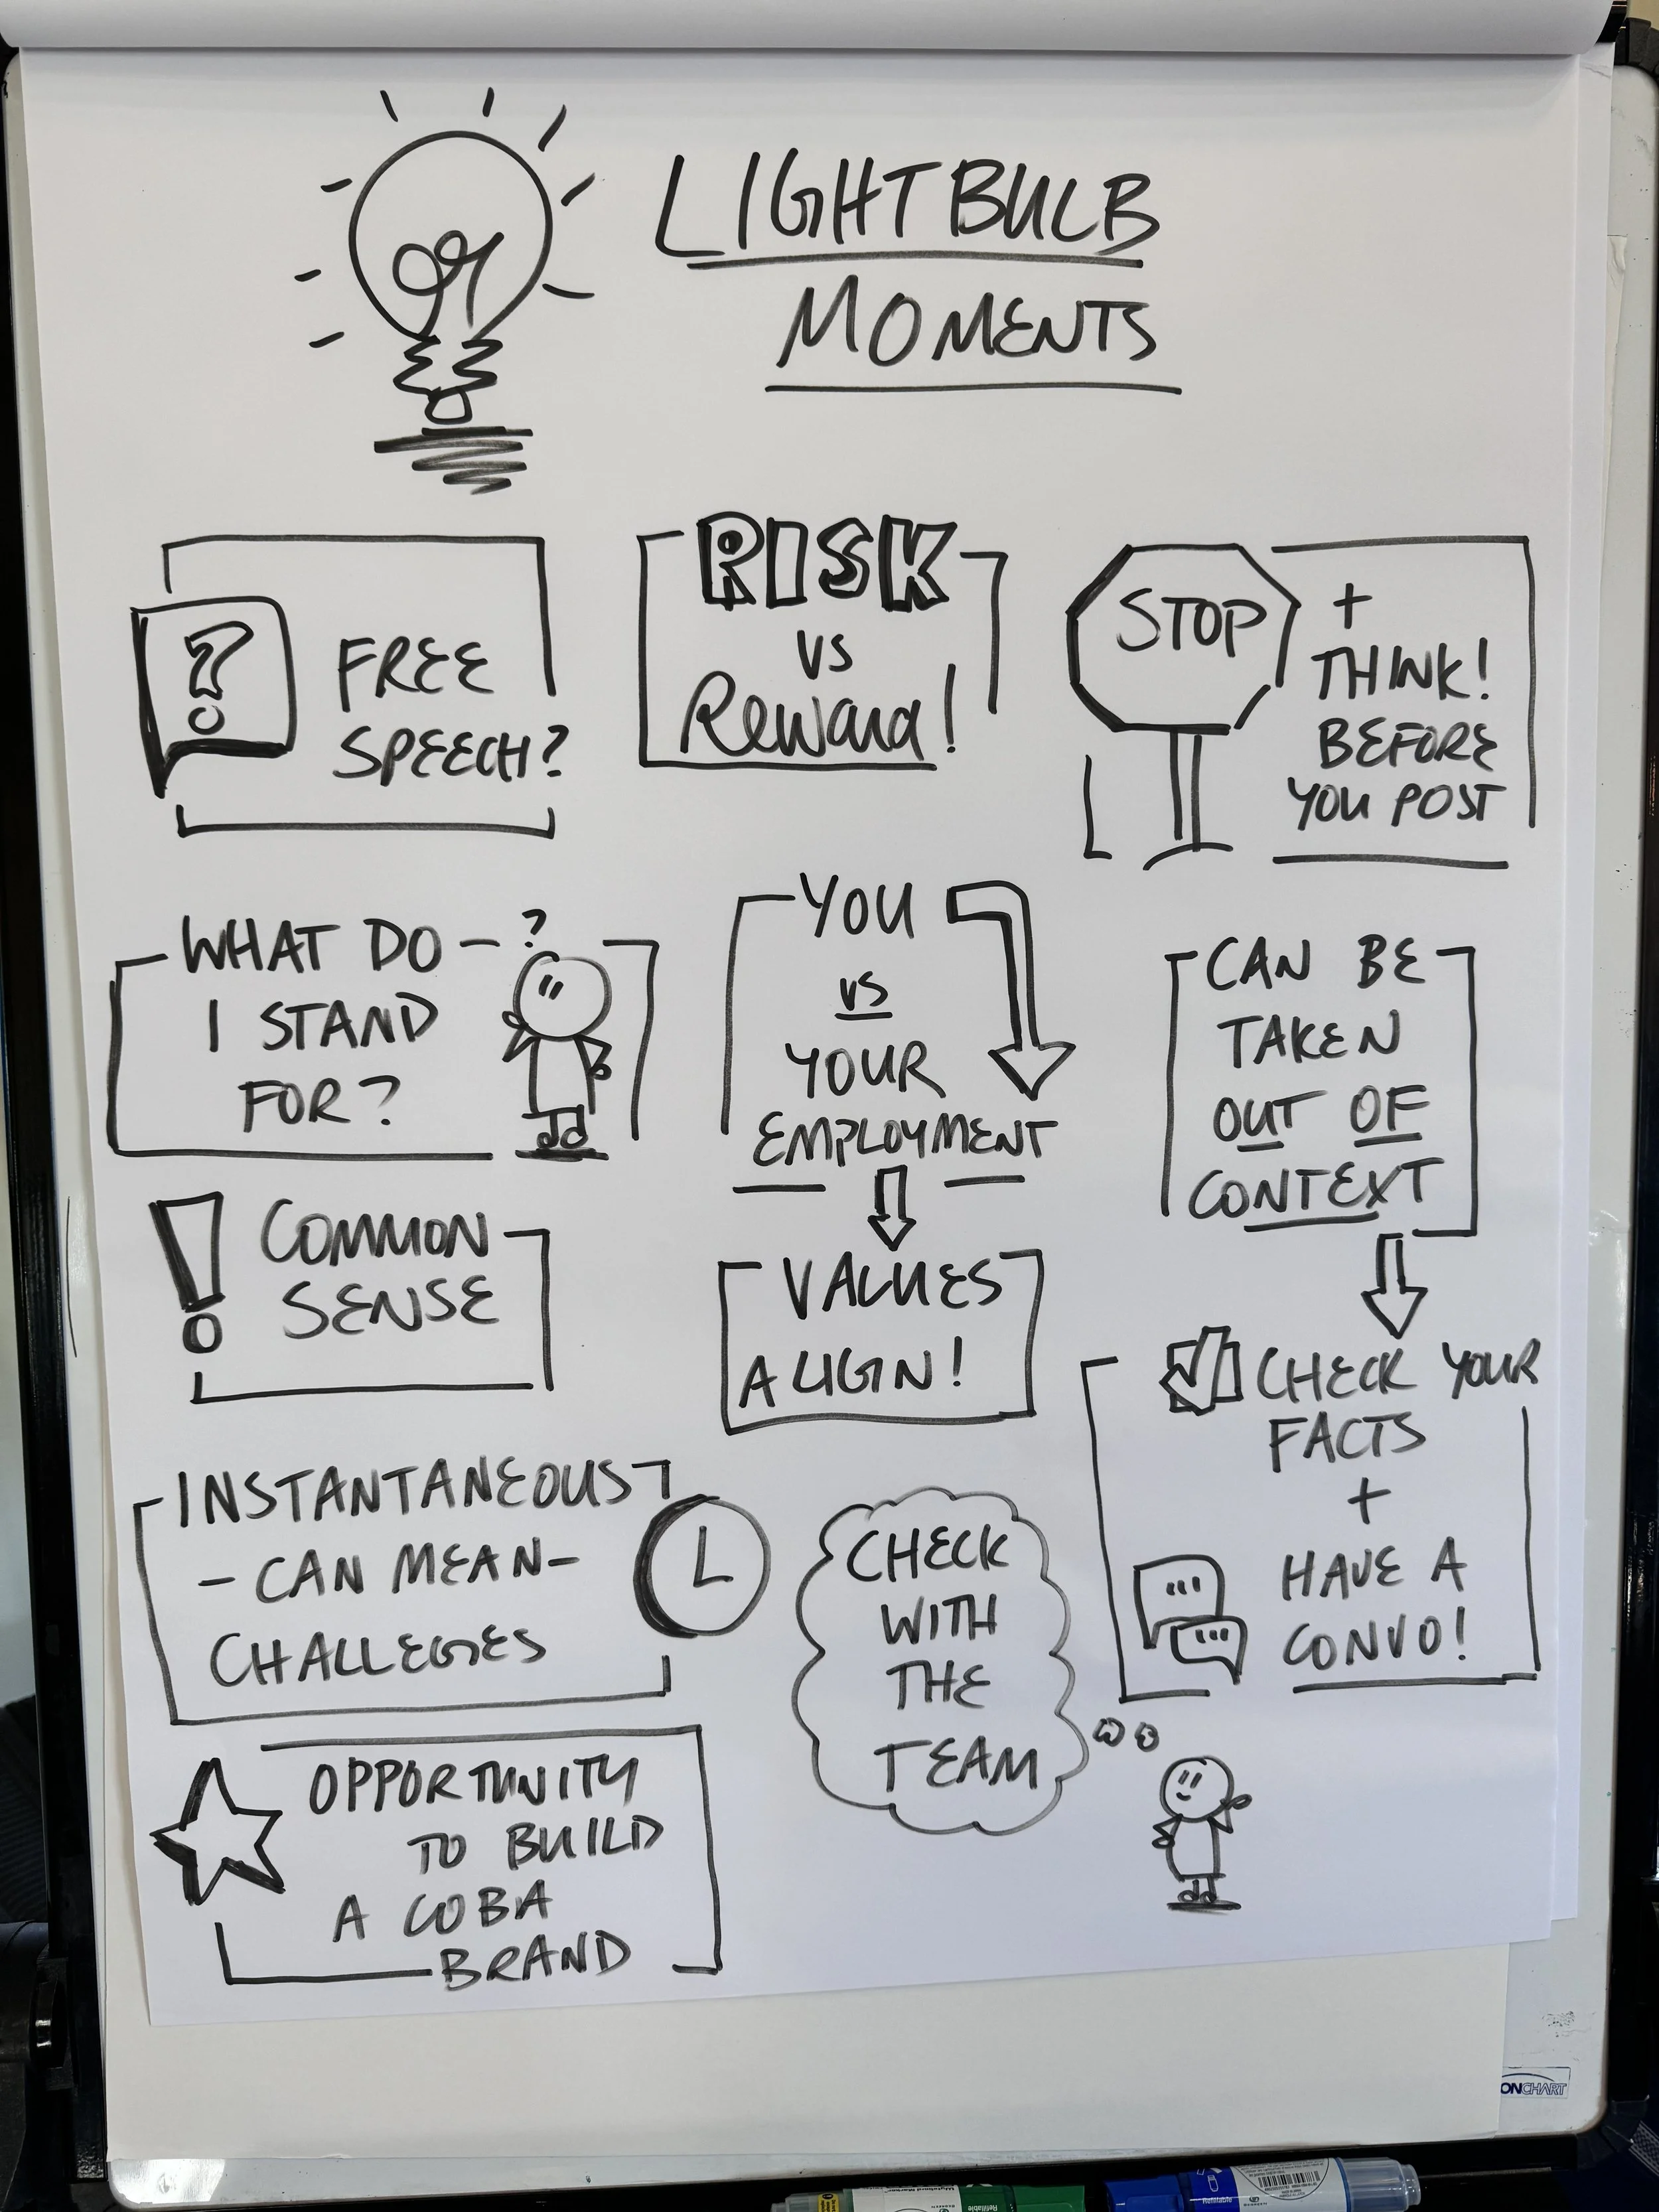 LIGHTBULB
MOMENTS
?
FREE
SPEECH?
RISK
VS
Reward!
STOP
+
THINK!
BEFORE
YOU POST
WHAT DO
?
I STAND
FOR?
YOU
VS
YOUR
EMPLOYMENT
VALUES
ALIGN!
CAN BE
TAKEN
OUT OF
CONTEXT
CHECK YOUR
FACTS
+
HAVE A
CONVO!
! COMMON
SENSE
INSTANTANEOUS
- CAN MEAN -
CHALLEGES
CHECK
WITH
THE
TEAM
OPPORTUNITY
TO BUILD
A COBA
BRAND
ONCHART